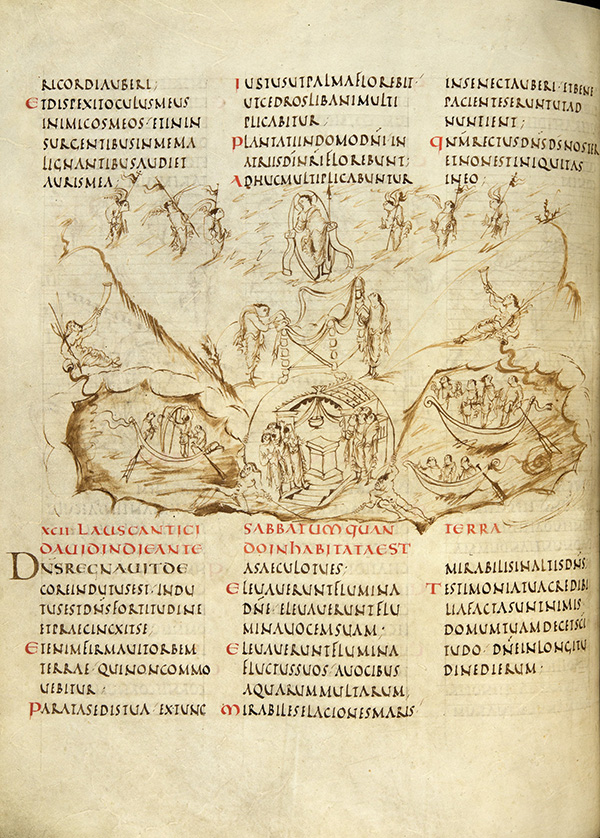 RICORDIAUBERI;
ETDISPEXITOCULUSMEUS
INIMICOSMEOS·ETININ
SURGENTIBUSINMEMA
LIGNANTIBUSAUDIET
AURISMEA
IUSTUSUTPALMAFLOREBIT·
UTCEDROSLIBANIMULTI
PLICABITUR·
PLANTATIINDOMODNI IN
ATRIISDINRIFLOREBUNT;
ADHUCMULTIPLICABUNTUR
INSENECTAUBERI·ETBENE
PACIENTESERUNTUTAD
NUNTIENT;
QNMRECTUSDNSDSNOSTER
ETNONESTINIQUITAS
INEO;
XCII·LAUSCANTICI
DAUIDINDIEANTE
SABBATUMQUAN
DOINHABITATAEST
TERRA
DNSREGNAUITDE
COREINDUTUSEST·INDU
TUSESTDNSFORTITUDINE
ETPRAECINXITSE;
ETENIMFIRMAUITORBEM
TERRAE·QUINONCOMMO
UEBITUR;
PARATASEDISTUA·EXTUNC
ASAECULOTUES;
ELEUAUERUNTFLUMINA
DNE·ELEUAUERUNTFLU
MINAUOCEMSUAM;
ELEUAUERUNTFLUMINA
FLUCTUSSUOS·AUOCIBUS
AQUARUMMULTARUM;
MIRABILESELACIONESMARIS·
MIRABILISINALTISDNS;
TESTIMONIATUACREDIBI
LIAFACTASUNTNIMIS·
DOMUMTUAMDECETSCI
TUDO·DNEINLONGITU
DINEDIERUM;